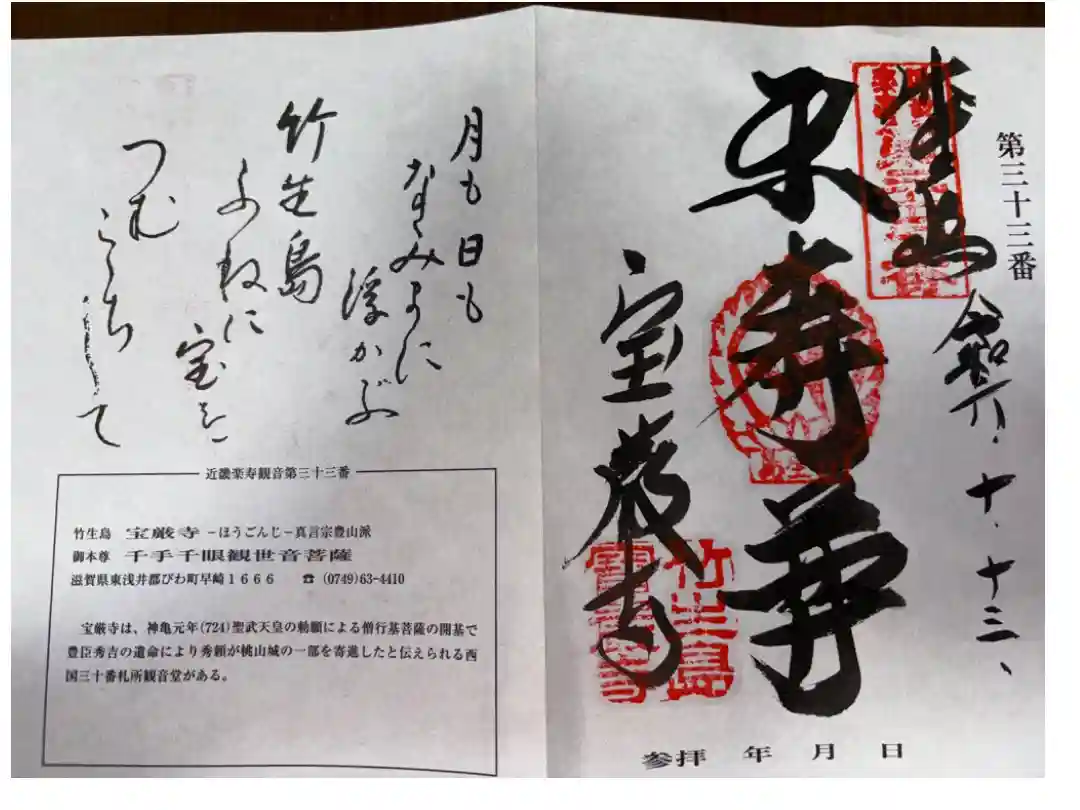 第三十三番
奉拝
令和六.十.十三、
楽寿尊
宝厳寺
竹生島
参拝 年 月 日
月も日も
なみまに
浮かぶ
竹生島
ふねに
宝を
つむ
こゝちして
近畿楽寿観音第三十三番
竹生島 宝厳寺 −ほうごんじ−真言宗豊山派
御本尊 千手千眼観世音菩薩
滋賀県東浅井郡びわ町早崎1666 ☎ (0749)63-4410
宝厳寺は、神亀元年(724)聖武天皇の勅願による僧行基菩薩の開基で
豊臣秀吉の遺命により秀頼が桃山城の一部を寄進したと伝えられる西
国三十番札所観音堂がある。